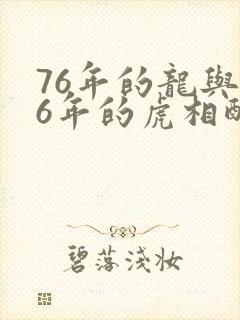 76年的龍與
6年的虎相配
碧落淺妝